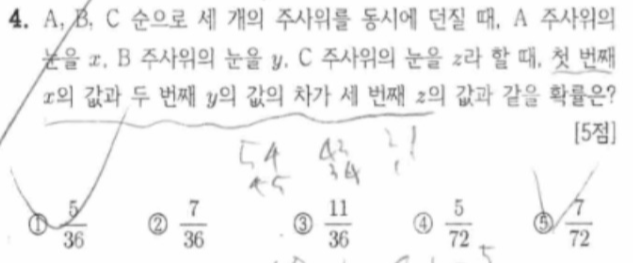 4. A, B, C 순으로 세 개의 주사위를 동시에 던질 때, A 주사위의
눈을 x, B 주사위의 눈을 y, C 주사위의 눈을 z라 할 때, 첫 번째
x의 값과 두 번째 y의 값의 차가 세 번째 z의 값과 같을 확률은?
[5점]
54 43
45 34
① 5/36 ② 7/36 ③ 11/36 ④ 5/72 ⑤ 7/72